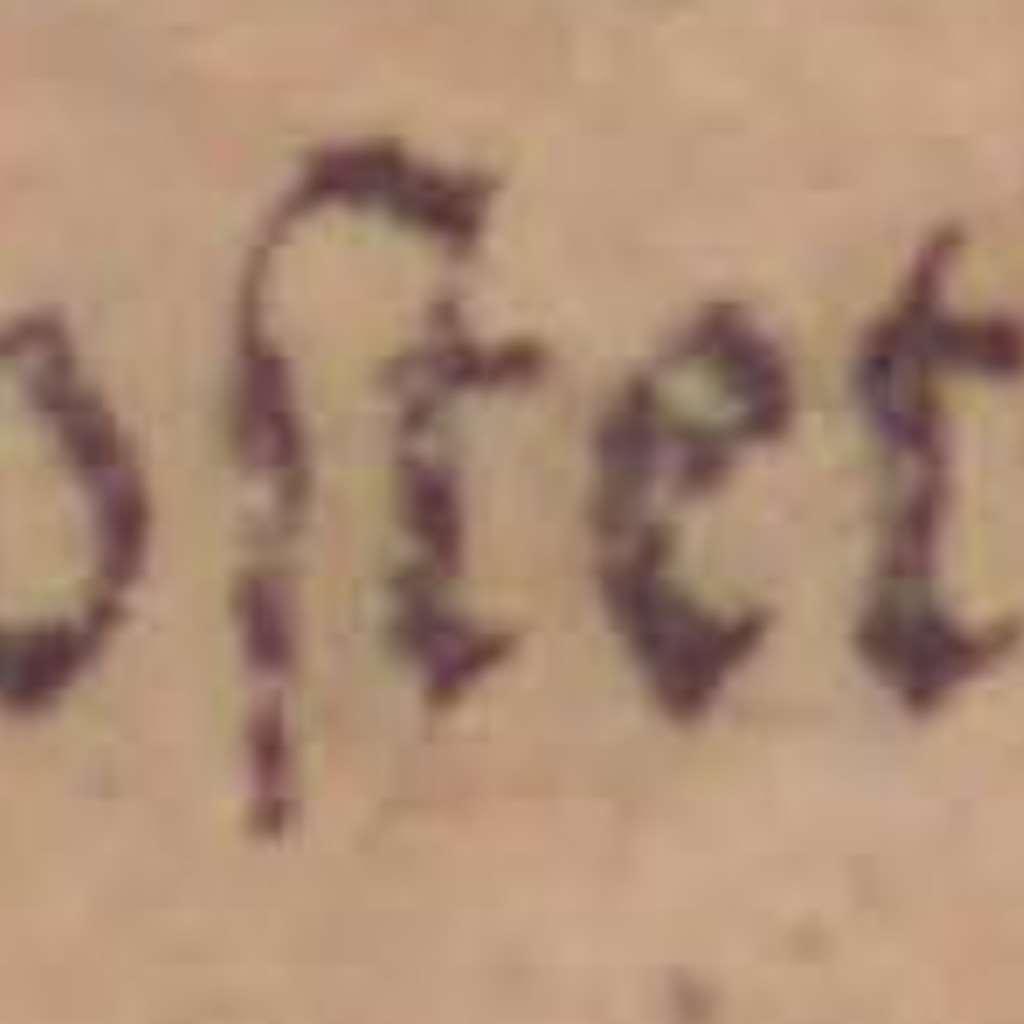 oſtet